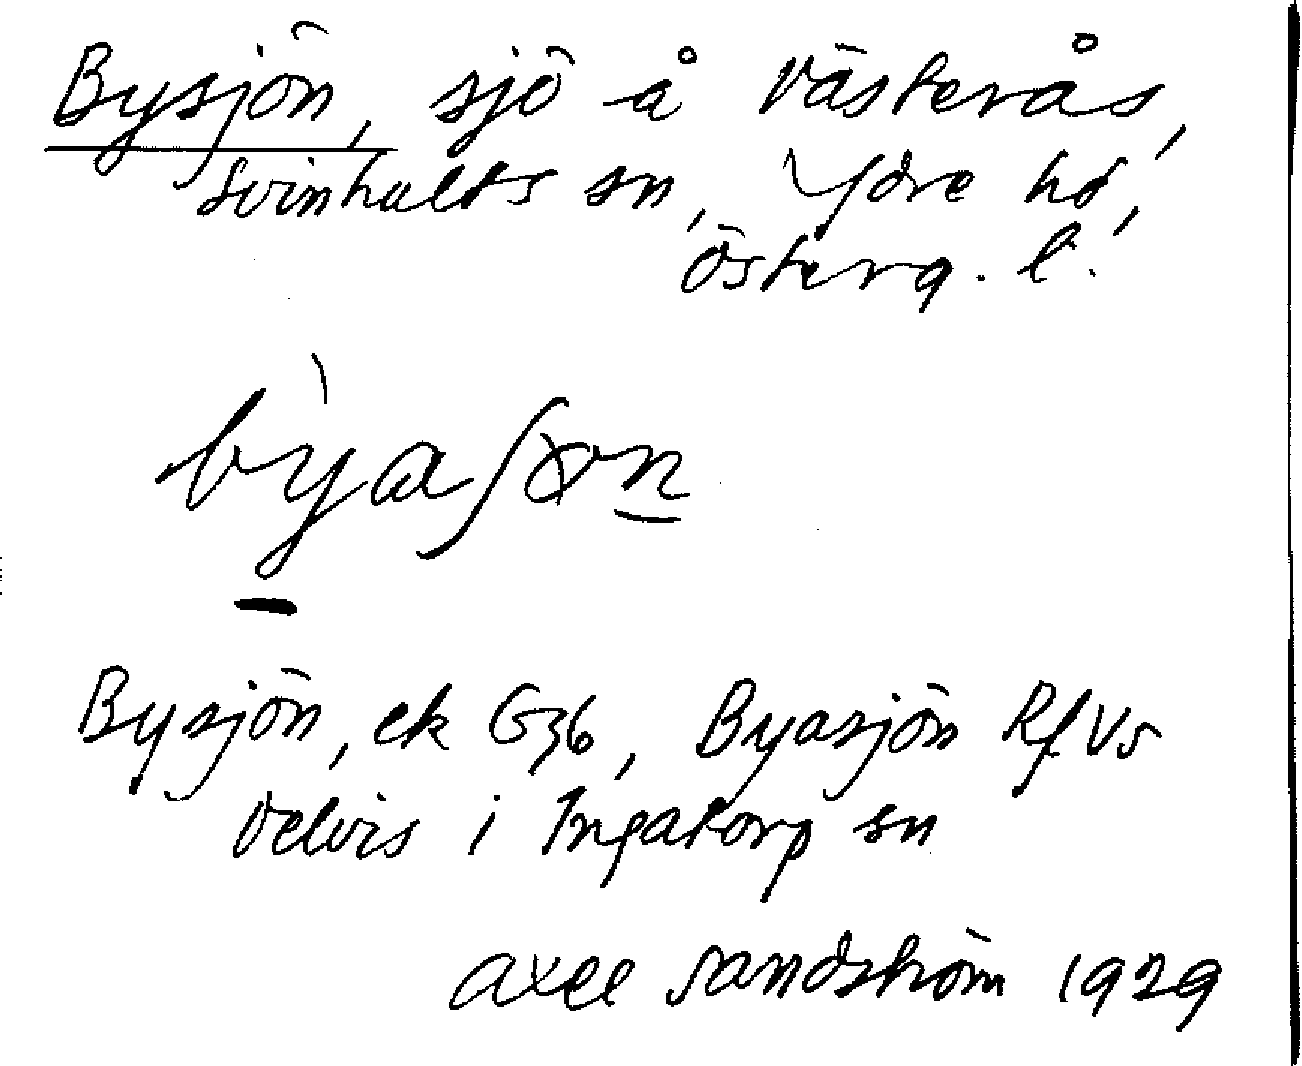 Bysjön, sjö å Västerås,
Svinhults sn, Ydre hd,
Österg. l.
bỳaʃøn
Bysjön, ek G36, Byasjön Rf V5
Delvis i Ingatorp sn
Axel Sandström 1929